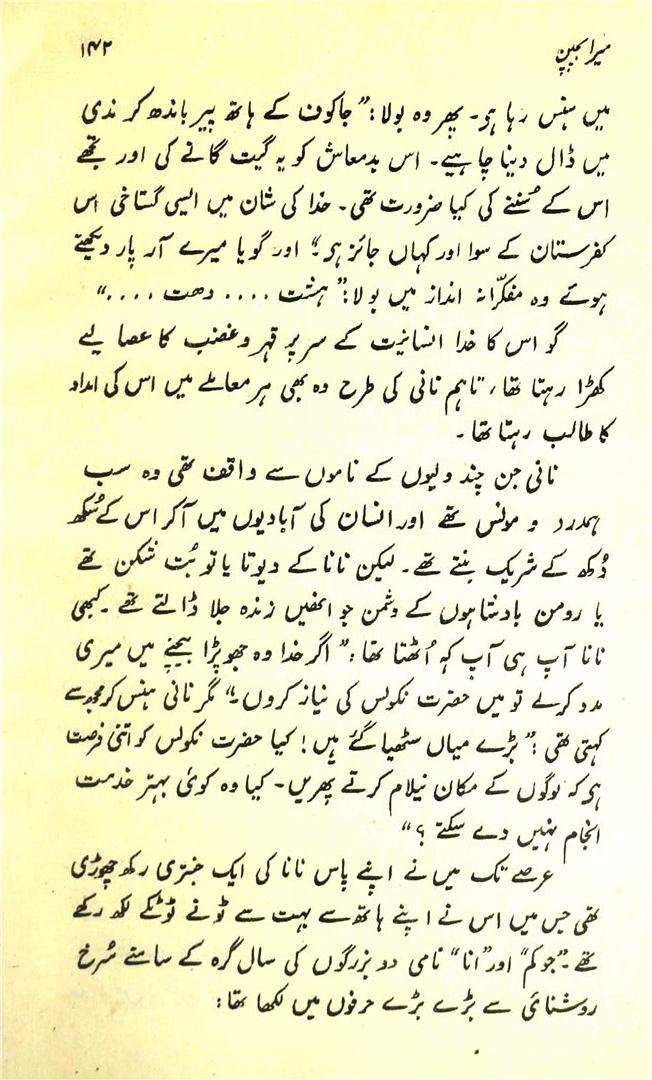 میرا بچپن
۱۴۲
میں ہنس رہا ہو۔ پھر وہ بولا: "جاکوف کے ہاتھ پیر باندھ کر ندی
میں ڈال دینا چاہیے۔ اس بدمعاش کو یہ گیت گانے کی اور تجھے
اس کے سُننے کی کیا ضرورت تھی۔ خدا کی شان میں ایسی گستاخی اس
کفرستان کے سوا اور کہاں جائز ہو؟" اور گویا میرے آر پار دیکھتے
ہوئے وہ مفکّرانہ انداز میں بولا: "ہشت .... دھت ...."
گو اس کا خدا انسانیت کے سر پر قہر و غضب کا عصا لیے
کھڑا رہتا تھا، تاہم نانی کی طرح وہ بھی ہر معاملے میں اس کی امداد
کا طالب رہتا تھا۔
نانی جن چند ولیوں کے ناموں سے واقف تھی وہ سب
ہمدرد و مونس تھے اور انسان کی آبادیوں میں آکر اس کے سُکھ
دُکھ کے شریک بنتے تھے۔ لیکن نانا کے دیوتا یا تو بُت شکن تھے
یا رومن بادشاہوں کے دشمن جو انھیں زندہ جلا ڈالتے تھے۔ کبھی
نانا آپ ہی آپ کہ اُٹھتا تھا: "اگر خدا وہ جھوپڑا بیچنے میں میری
مدد کرلے تو میں حضرت نکولس کی نیاز کروں۔" مگر نانی ہنس کر مجھ سے
کہتی تھی: "بڑے میاں سٹھیا گئے ہیں! کیا حضرت نکولس کو اتنی فرصت
ہو کہ لوگوں کے مکان نیلام کرتے پھریں۔ کیا وہ کوئی بہتر خدمت
انجام نہیں دے سکتے؟"
عرصے تک میں نے اپنے پاس نانا کی ایک جنتری رکھ چھوڑی
تھی جس میں اس نے اپنے ہاتھ سے بہت سے ٹونے ٹوٹکے لکھ رکھے
تھے۔ "جوکم" اور "انا" نامی دو بزرگوں کی سال گرہ کے سامنے سُرخ
روشنائی سے بڑے بڑے حرفوں میں لکھا تھا: